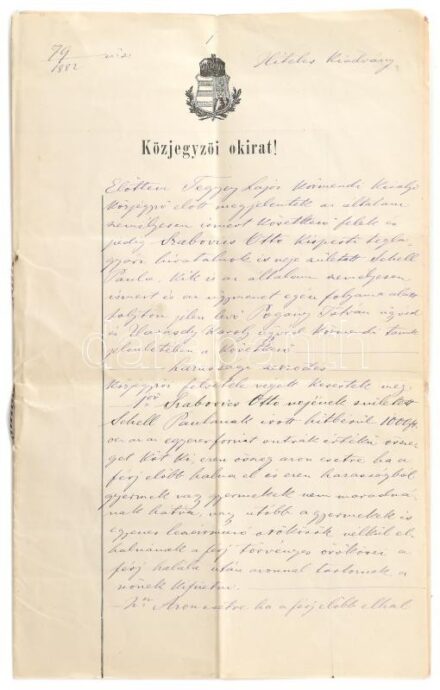 79/882 sz.
Hiteles Kiadvány.
Közjegyzői okirat!
Előttem Lajos Körmendi Királyi
Közjegyző előtt megjelentek az általam
személyesen ismert következő felek és
pedig Szabovics Otto téglagyári
hivatalnok és neje született Schell
Paula. Kik is az általam személyesen
ismert és az ügymenet egész folyama alatt
folyton jelen levő Pogány István ügyvéd
és Károly ügyvéd Körmendi tanuk
jelenlétében a következő
házassági szerződés
közjegyzői felvétele végett kérestek meg.
1ör Szabovics Otto nejének született
Schell Paulanak irott hitbérül 1000 f
az az egyezer forint o. é. össze-
get köt ki, ezen összeg azon esetre ha a
férj előbb halna el és ezen házasságból
gyermek vagy gyermekek nem maradná-
nak hátra, vagy utóbb a gyermekek és
egyenes leszármazó örökösök nélkül el-
halnának a férj törvényes örökösei a
férj halála után azonnal tartoznak a
nőnek kifizetni.
2or Azon esetre ha a férj előbb elhal